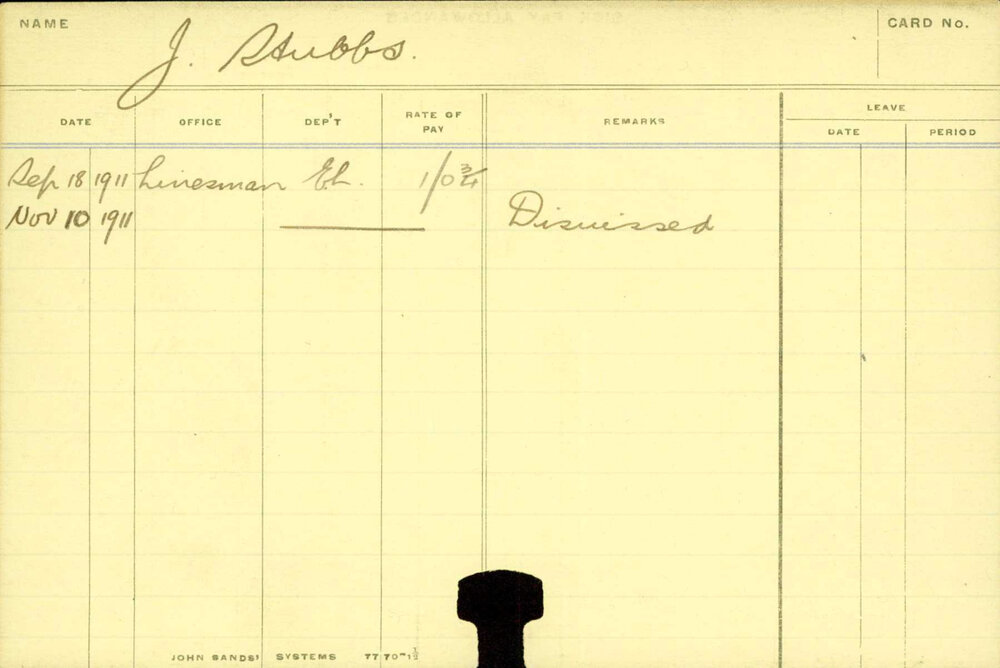 NAME
J. Stubbs.
CARD No.
DATE OFFICE DEP'T RATE OF PAY REMARKS LEAVE
DATE PERIOD
Sep 18 1911 Linesman El. 1/0¾
Nov 10 1911 Dismissed
JOHN SANDS' SYSTEMS